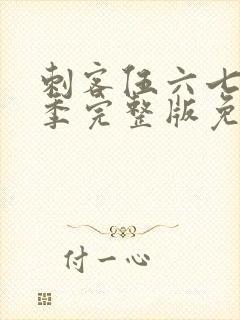 刺客伍六七
季完整版免
付一心